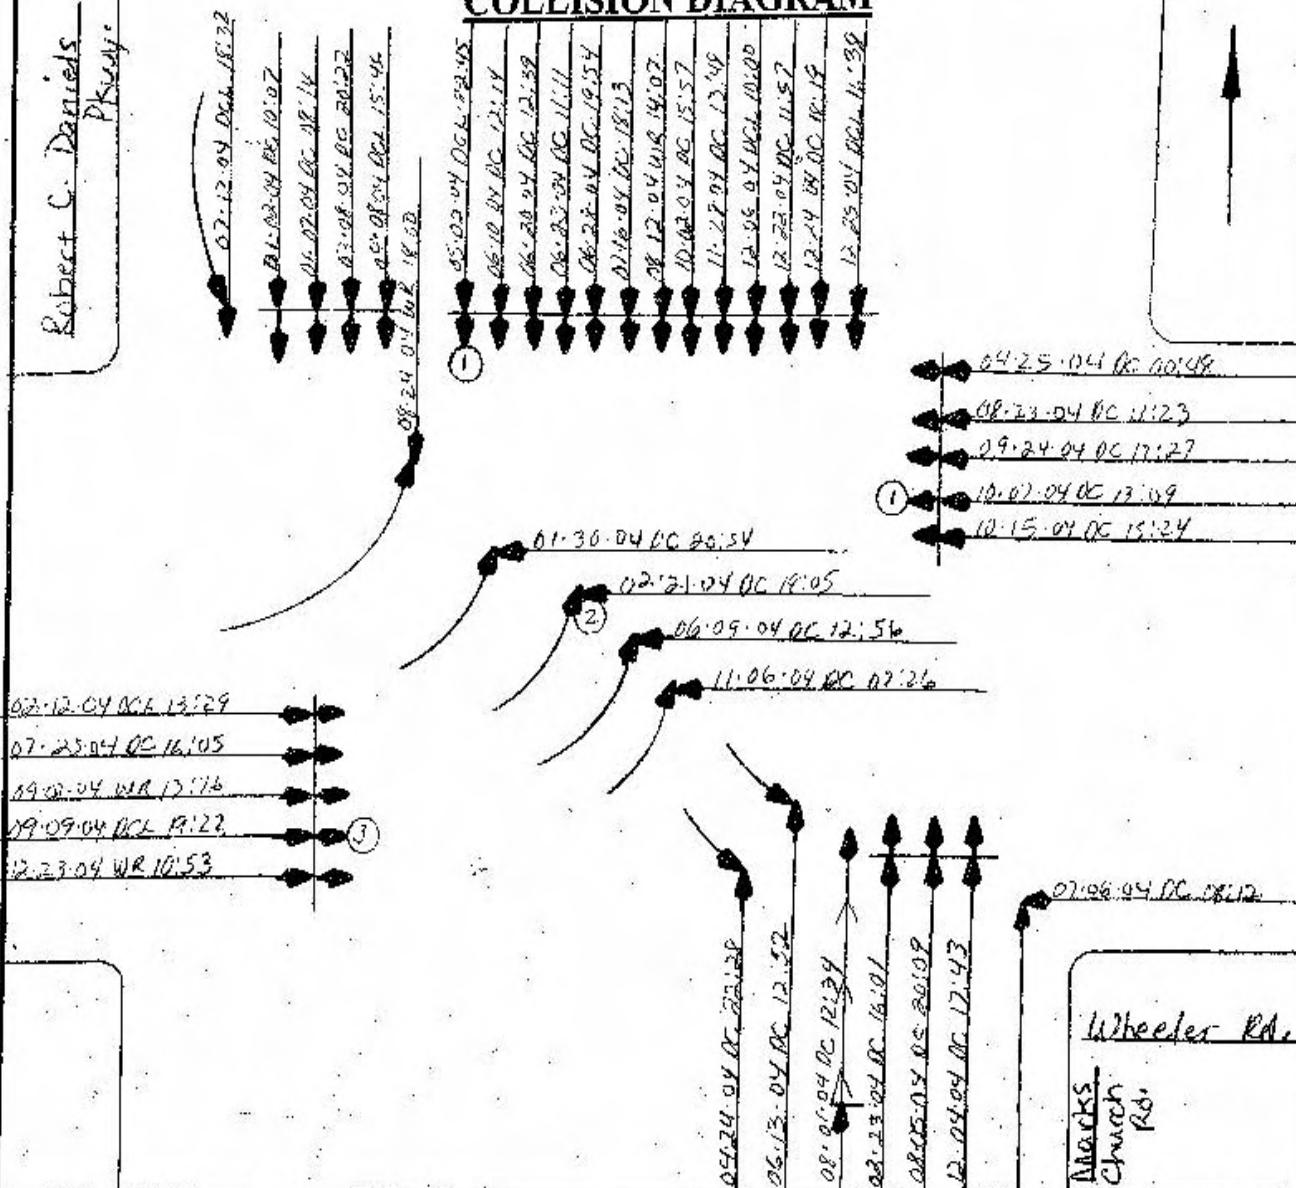 COLLISION DIAGRAM
Robert C. Daniels
Pkwy.
07-12-04 DCL 18:32
01-02-04 DC 10:07
03-08-04 DC 20:22
08-24-04 WR 18:00
05-02-04 DCL 22:45
06-10-04 DC 12:14
06-20-04 DC 12:39
06-23-04 DC 11:11
06-28-04 DC 19:54
07-16-04 DC 18:13
08-12-04 WR 14:07
10-02-04 DC 15:57
12-06-04 DCL 10:00
12-22-04 DC 11:57
12-24-04 DC
12-25-04 DCL 11:38
1
04-25-04 DC 00:48
08-23-04 DC 11:23
09-24-04 DC 17:27
1
10-07-04 DC 13:09
10-15-04 DC 15:24
01-30-04 DC 20:54
02-21-04 DC 19:05
2
06-09-04 DC 12:56
11-06-04 DC 07:26
02-12-04 DCL 13:29
07-25-04 DC 16:05
WR
09-09-04 DCL 19:22
3
12-23-04 WR 10:53
04-24-04 DC 22:28
06-13-04 DC 12:52
08-01-04 DC 12:34
02-23-04 DC 16:01
08-05-04 DC 20:09
12-04-04 DC 17:43
07-06-04 DC 08:12
Wheeler Rd.
Marks
Church
Rd.